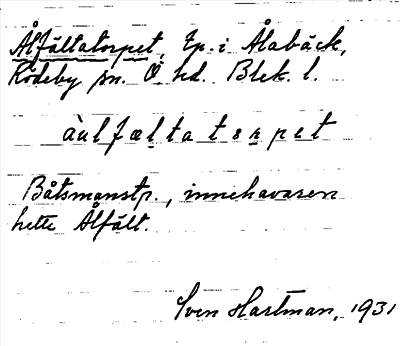 Ålfältatorpet, tp. i Ålabäck,
Rödeby sn. Ö hd. Blek. l.
àulfælta tɛrpet
Båtsmanstp., innehavaren
hette Ålfält.
Sven Hartman, 1931